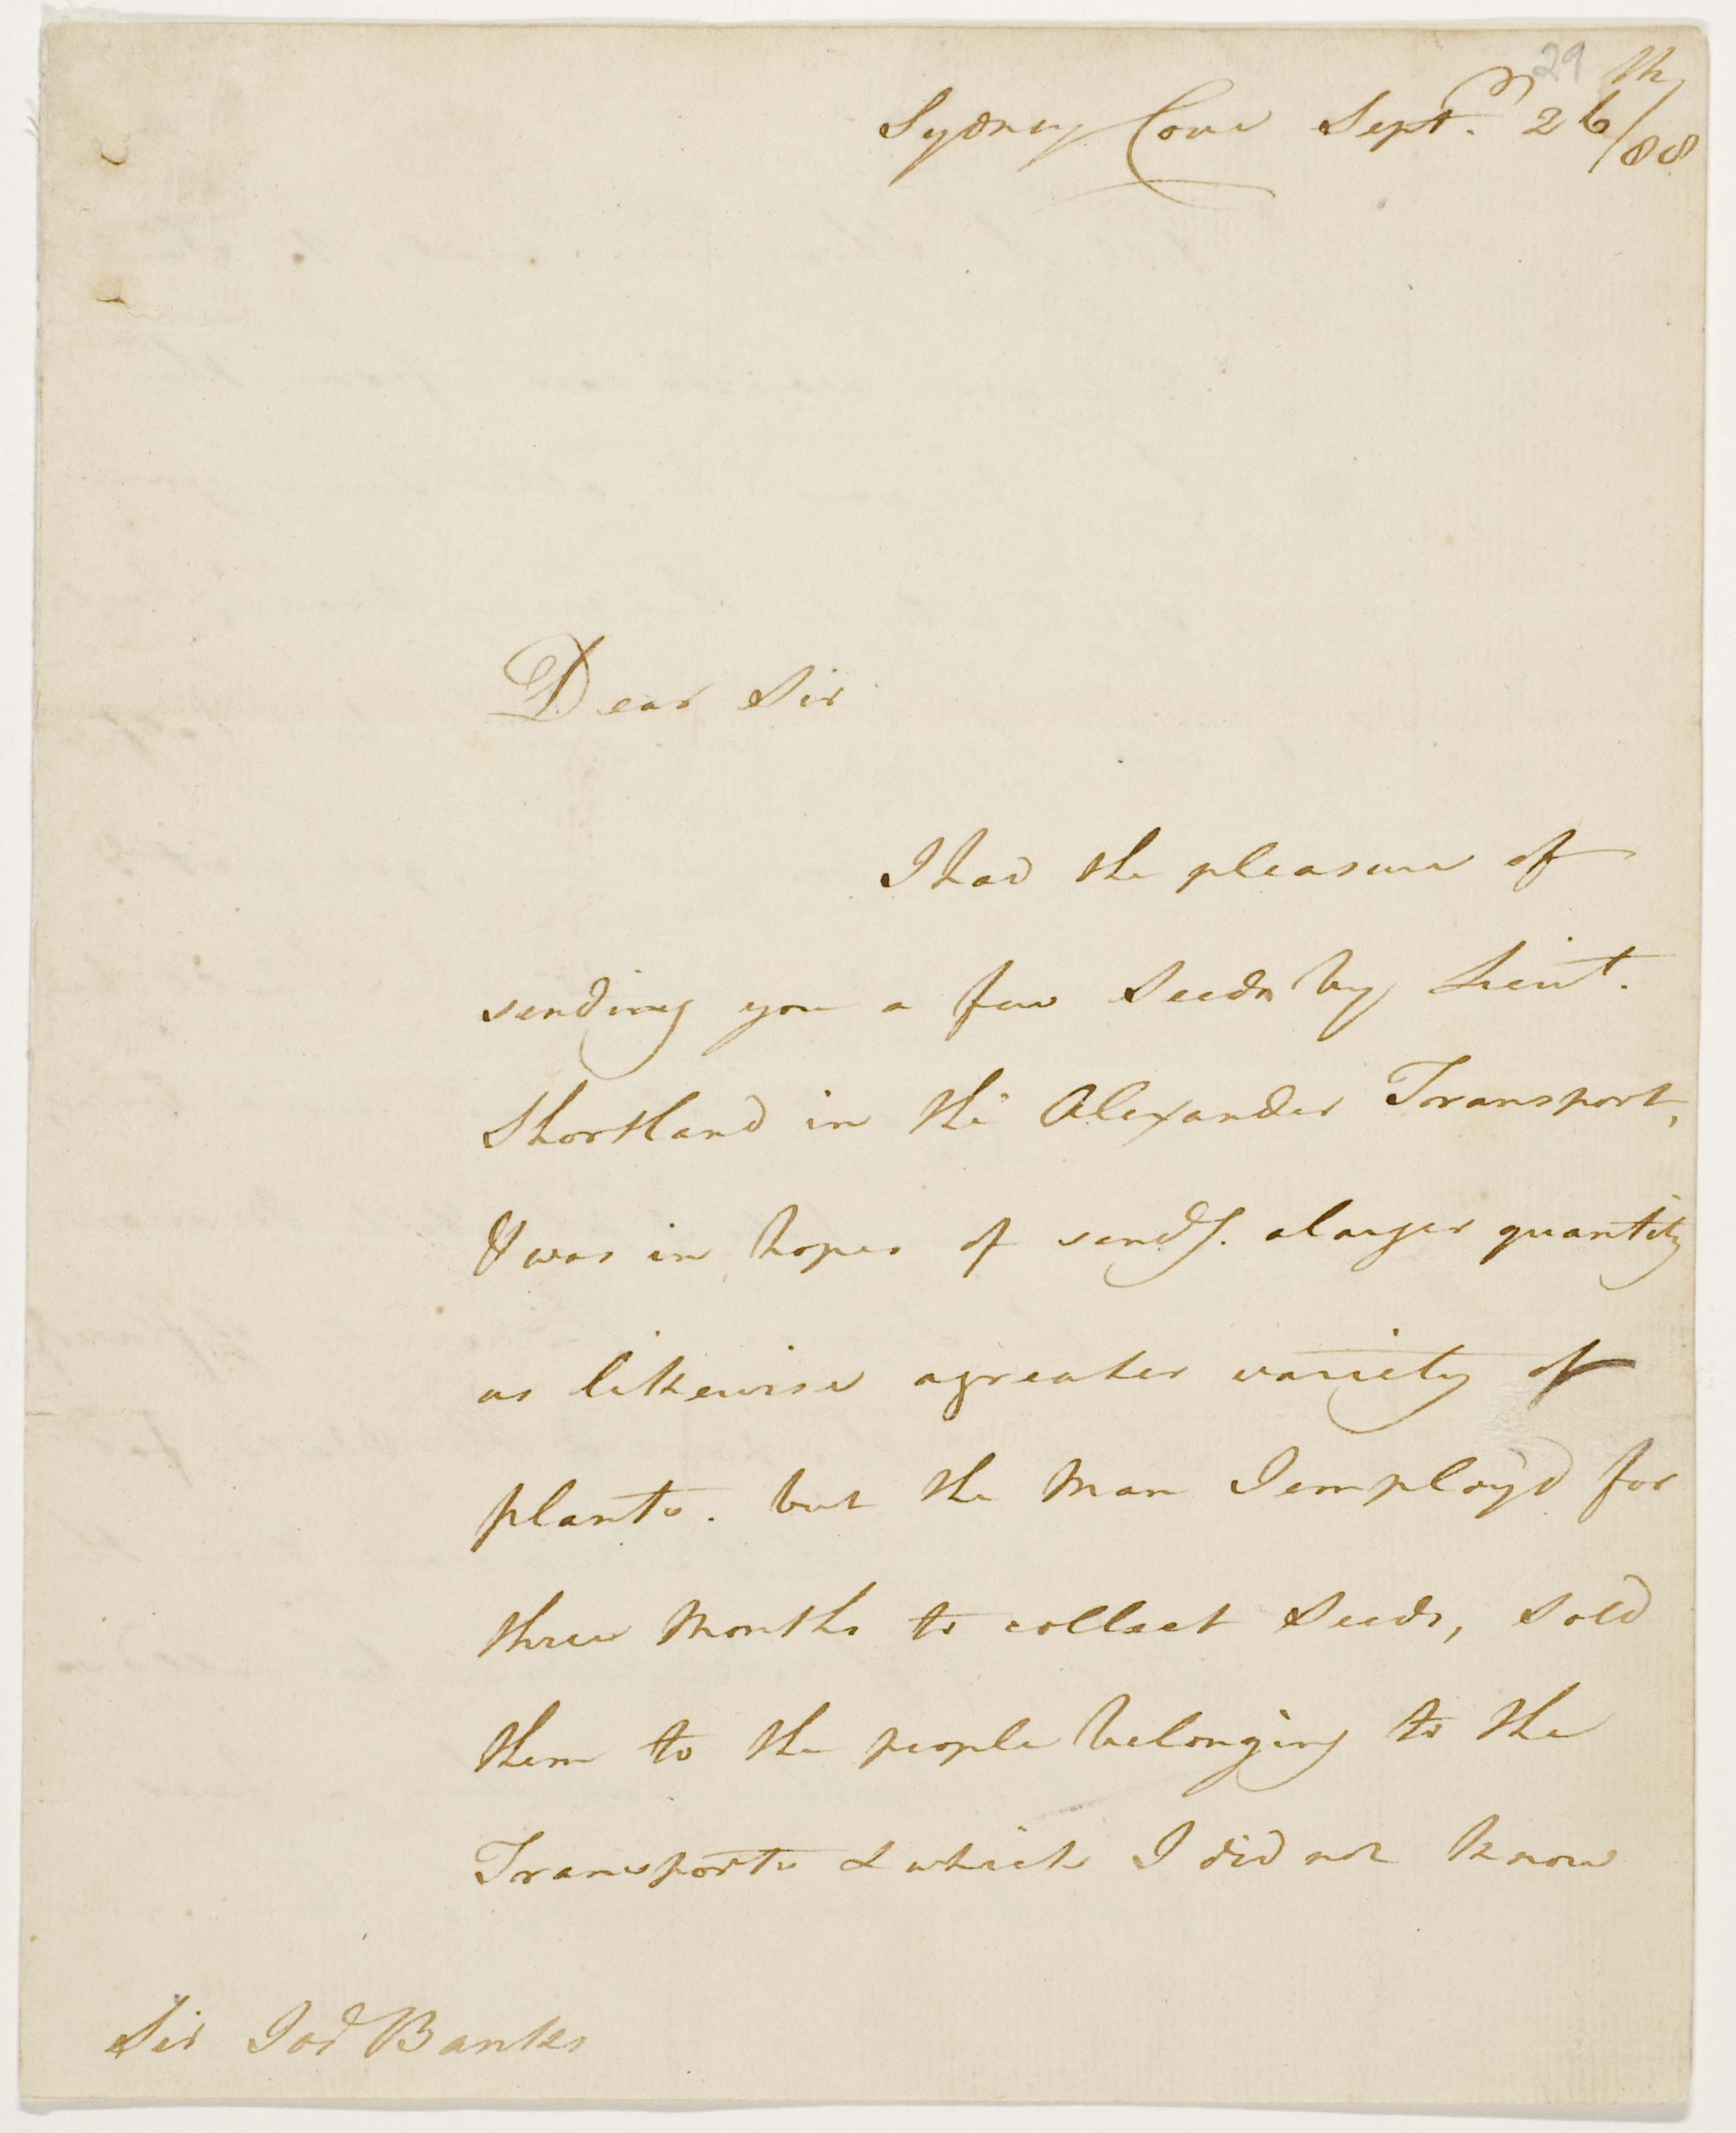 29
Sydney Cove Sept.r 26th/88
Dear Sir
I had the pleasure of
sending you a few Seeds by Lieut.
Shortland in the Alexander Transport,
& was in hopes of sendg. a larger quantity
as likewise a greater variety of
plants. but the Man I employ'd for
three Months to collect Seeds, sold
them to the people belonging to the
Transports & which I did not know
Sir Jos Banks